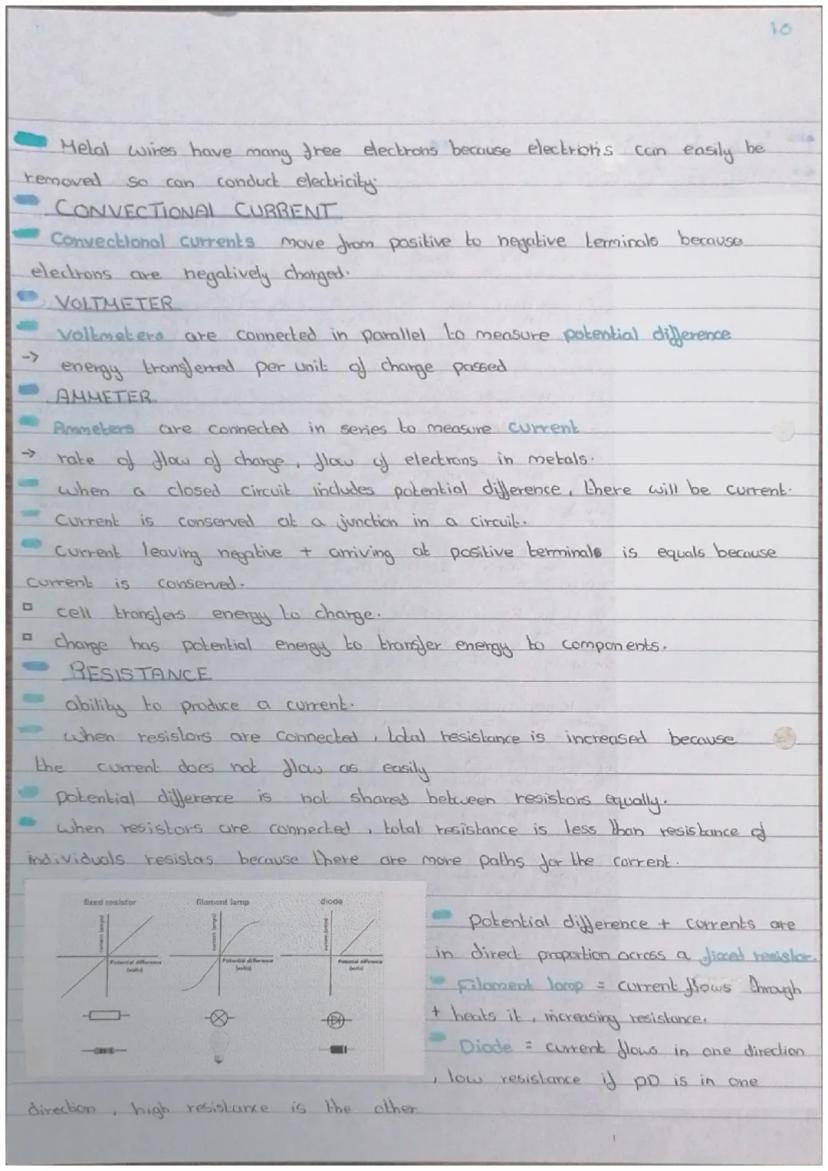 10
Metal wires have many free electrons because electrons can easily be
removed so can conduct electricity.
CONVECTIONAL CURRENT
Convectional currents move from positive to negative terminals because
electrons are negatively charged.
VOLTMETER
Voltmeters are connected in parallel to measure potential difference
→ energy transferred per unit of charge passed
AMMETER
Ammeters are connected in series to measure current
→ rate of flow of charge, flow of electrons in metals.
when a closed circuit includes potential difference, there will be current.
Current is conserved at a junction in a circuit.
current leaving negative + arriving at positive terminals is equals because
current is conserved.
cell transfers energy to charge.
charge has potential energy to transfer energy to components.
RESISTANCE
ability to produce a current.
when resistors are connected, total resistance is increased because
the current does not flow as easily
potential difference is not shared between resistors equally.
when resistors are connected, total resistance is less than resistance of
individuals resistors because there are more paths for the current.
fixed resistor filament lamp diode
current (amps) current (amps) current (amps)
Potential difference (volts) Potential difference (volts) Potential difference (volts)
potential difference + currents are
in direct propotion across a fixed resistor.
Filament lamp = current flows through
+ heats it, increasing resistance.
Diode = current flows in one direction
, low resistance if PD is in one
direction, high resistance is the other